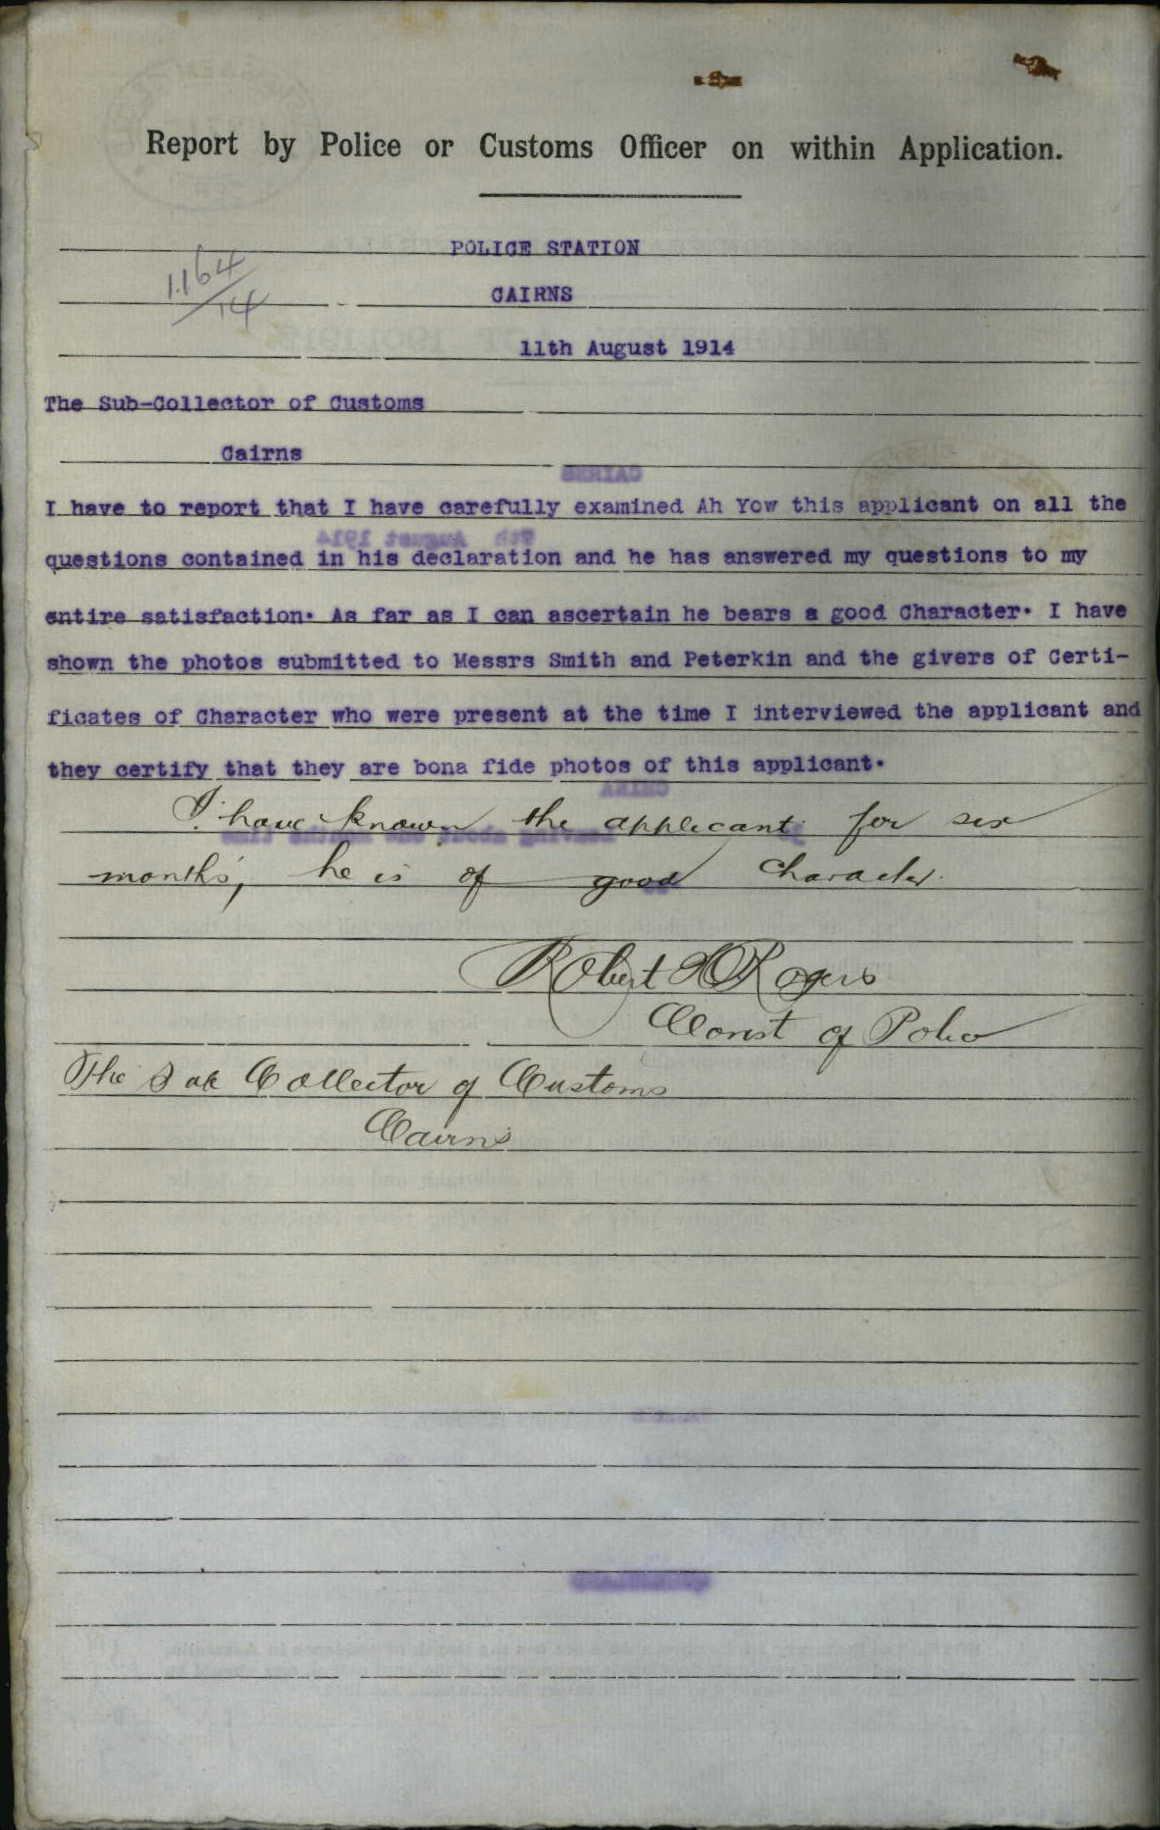 Report by Police or Customs Officer on within Application.
POLICE STATION
1164/14
CAIRNS
11th August 1914
The Sub-Collector of Customs
Cairns
I have to report that I have carefully examined Ah Yow this applicant on all the
questions contained in his declaration and he has answered my questions to my
entire satisfaction. As far as I can ascertain he bears a good Character. I have
shown the photos submitted to Messrs Smith and Peterkin and the givers of Certi-
ficates of Character who were present at the time I interviewed the applicant and
they certify that they are bona fide photos of this applicant.
I have known the applicant for six
months, he is of good character.
Robert Rogers
Const of Police
The Sub Collector of Customs
Cairns